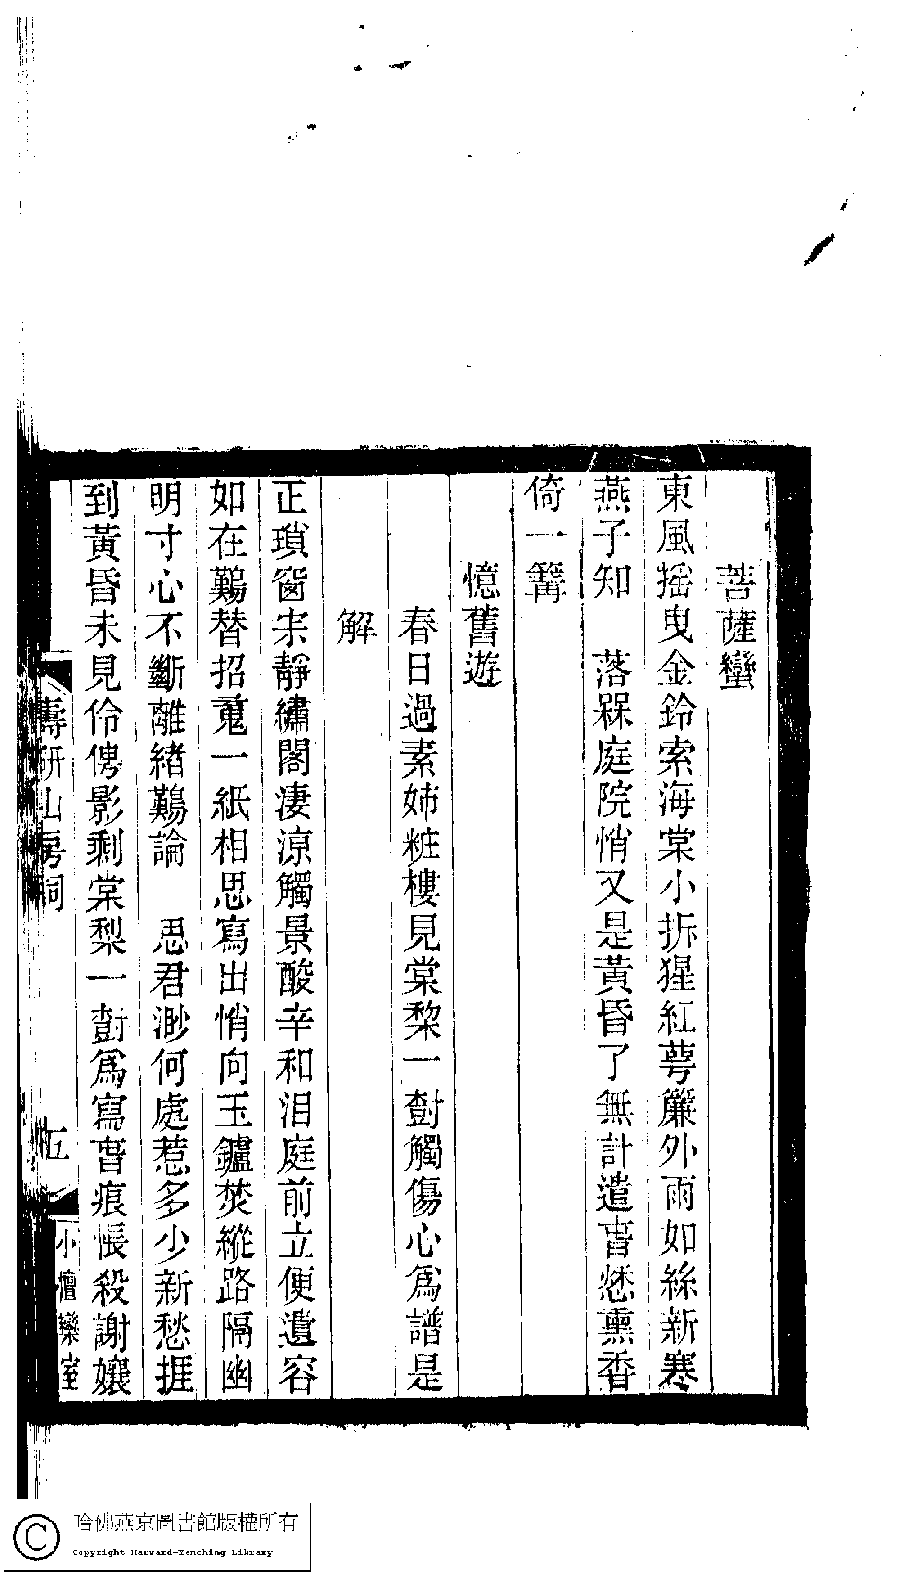 菩薩蠻
東風搖曳金鈴索海棠小拆猩紅萼簾外雨如絲新寒
燕子知　落槑庭院悄又是黃昏了無計遣旾愁熏香
倚一篝
憶舊遊
春日過素姊粧樓見棠棃一對觸傷心爲譜是
解
正瑣窗宋靜繡閣淒涼觸景酸辛和泪庭前立便遺容
如在鷬替招䰟一紙相思寫出悄向玉鑪焚縱路隔幽
明寸心不斷離緒鷬論　思君渺何處惹多少新愁捱
到黃昏未見伶俜影剩棠梨一對爲寫旾痕悵殺謝孃
壽研山房詞
五
小檀欒室
哈佛燕京圖書館版權所有
Copyright Harvard-Yenching Library